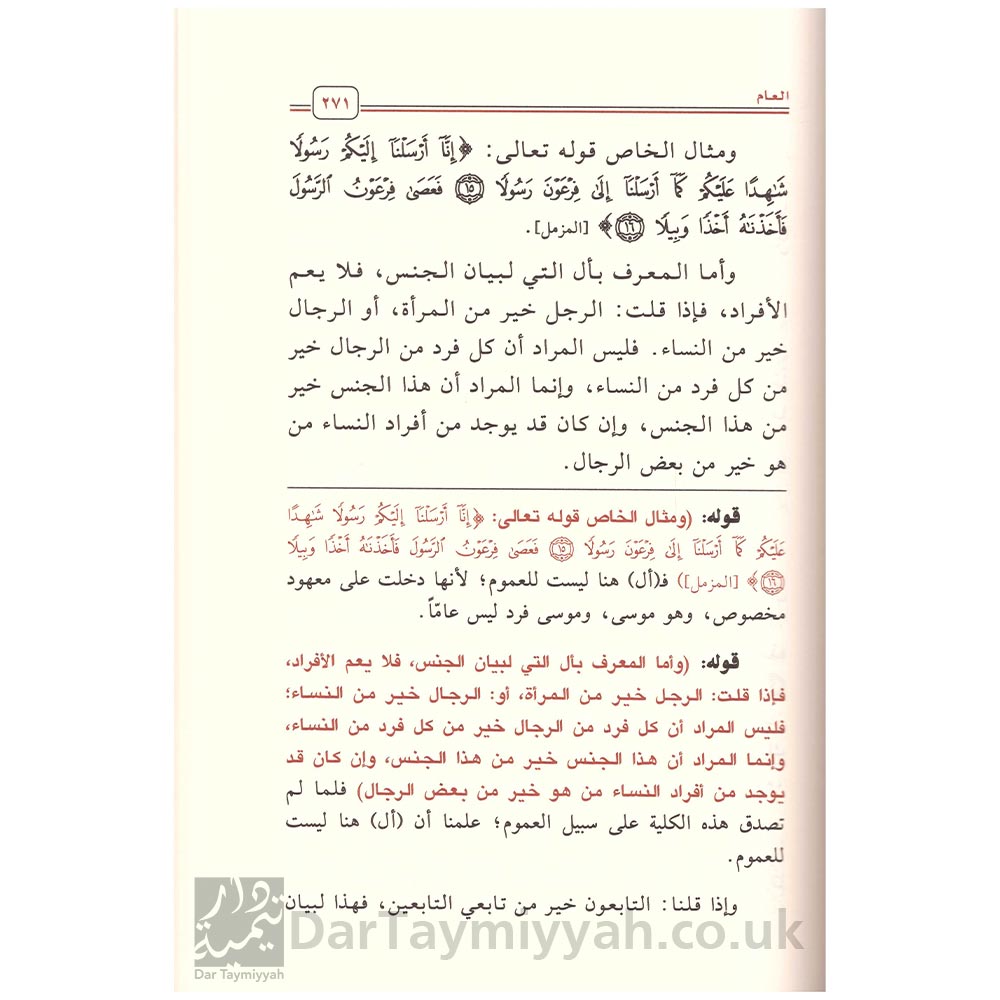 العام
٢٧١
ومثال الخاص قوله تعالى: ﴿إِنَّآ أَرْسَلْنَآ إِلَيْكُمْ رَسُولًا
شَٰهِدًا عَلَيْكُمْ كَمَآ أَرْسَلْنَآ إِلَىٰ فِرْعَوْنَ رَسُولًا ۝١٥ فَعَصَىٰ فِرْعَوْنُ ٱلرَّسُولَ
فَأَخَذْنَٰهُ أَخْذًا وَبِيلًا ۝١٦﴾ [المزمل].
وأما المعرف بأل التي لبيان الجنس، فلا يعم
الأفراد، فإذا قلت: الرجل خير من المرأة، أو الرجال
خير من النساء. فليس المراد أن كل فرد من الرجال خير
من كل فرد من النساء، وإنما المراد أن هذا الجنس خير
من هذا الجنس، وإن كان قد يوجد من أفراد النساء من
هو خير من بعض الرجال.
قوله: (ومثال الخاص قوله تعالى: ﴿إِنَّآ أَرْسَلْنَآ إِلَيْكُمْ رَسُولًا شَٰهِدًا
عَلَيْكُمْ كَمَآ أَرْسَلْنَآ إِلَىٰ فِرْعَوْنَ رَسُولًا ۝١٥ فَعَصَىٰ فِرْعَوْنُ ٱلرَّسُولَ فَأَخَذْنَٰهُ أَخْذًا وَبِيلًا
۝١٦﴾ [المزمل]) فـ(أل) هنا ليست للعموم؛ لأنها دخلت على معهود
مخصوص، وهو موسى، وموسى فرد ليس عامّاً.
قوله: (وأما المعرف بأل التي لبيان الجنس، فلا يعم الأفراد،
فإذا قلت: الرجل خير من المرأة، أو: الرجال خير من النساء؛
فليس المراد أن كل فرد من الرجال خير من كل فرد من النساء،
وإنما المراد أن هذا الجنس خير من هذا الجنس، وإن كان قد
يوجد من أفراد النساء من هو خير من بعض الرجال) فلما لم
تصدق هذه الكلية على سبيل العموم؛ علمنا أن (أل) هنا ليست
للعموم.
وإذا قلنا: التابعون خير من تابعي التابعين، فهذا لبيان
دار تيمية
Dar Taymiyyah
DarTaymiyyah.co.uk